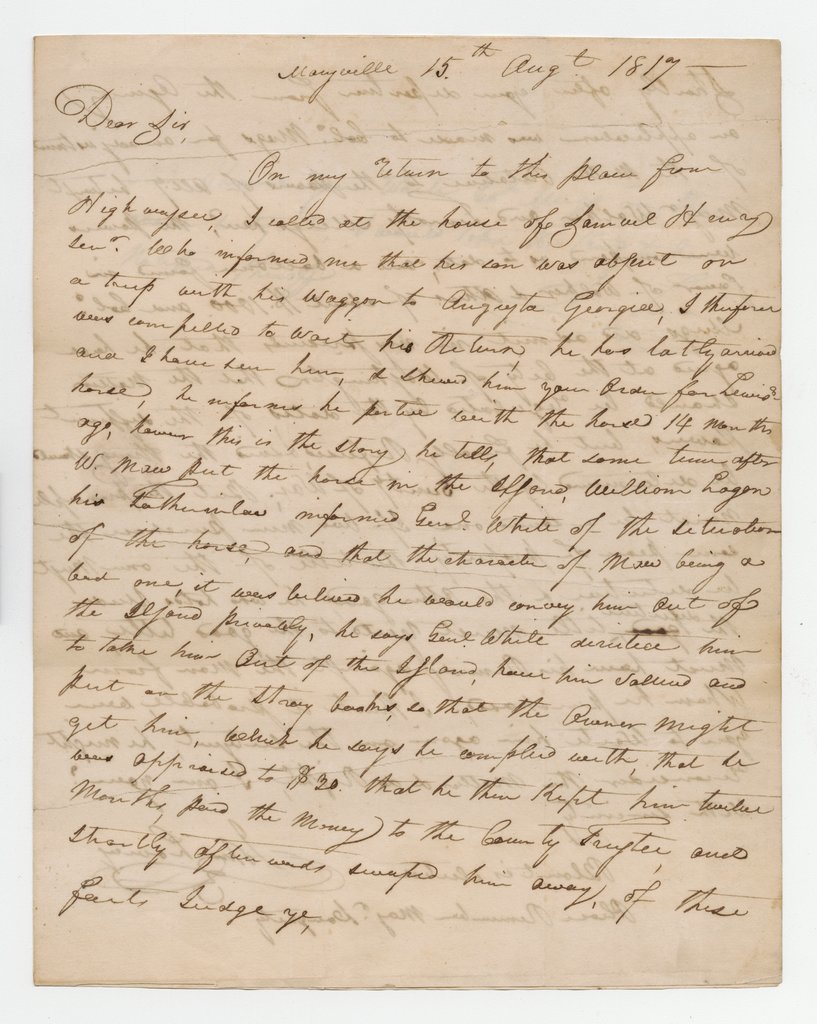 Maryville 15.th Augt 1817
Dear Sir,
On my return to this place from
Highwassee, I called at the house of Samuel Henry
Senr. Who informed me that his son was absent on
a trip with his Waggon to Augusta Georgia, I therefore
was compelled to wait his Return, he has lately arrived
and I have seen him, I shewed him your Order for Lewis's
horse, he informs he parted with the horse 14 months
ago, however this is the story he tells, that some time after
W. Maw put the horse in the Island, William Logan
his Fatherinlaw informed Genl. White of the situation
of the horse, and that the character of Maw being a
bad one, it was believed he would convey him out of
the Island privately, he says Genl. White directed him
to take him Out of the Island, have him valued and
put on the stray books, so that the Owner might
get him, which he says he complied with, that he
was appraised to $30. that he then Kept him twelve
Months, paid the Money to the County Trustee, and
shortly afterwards swaped him away, of these
facts Judge ye,